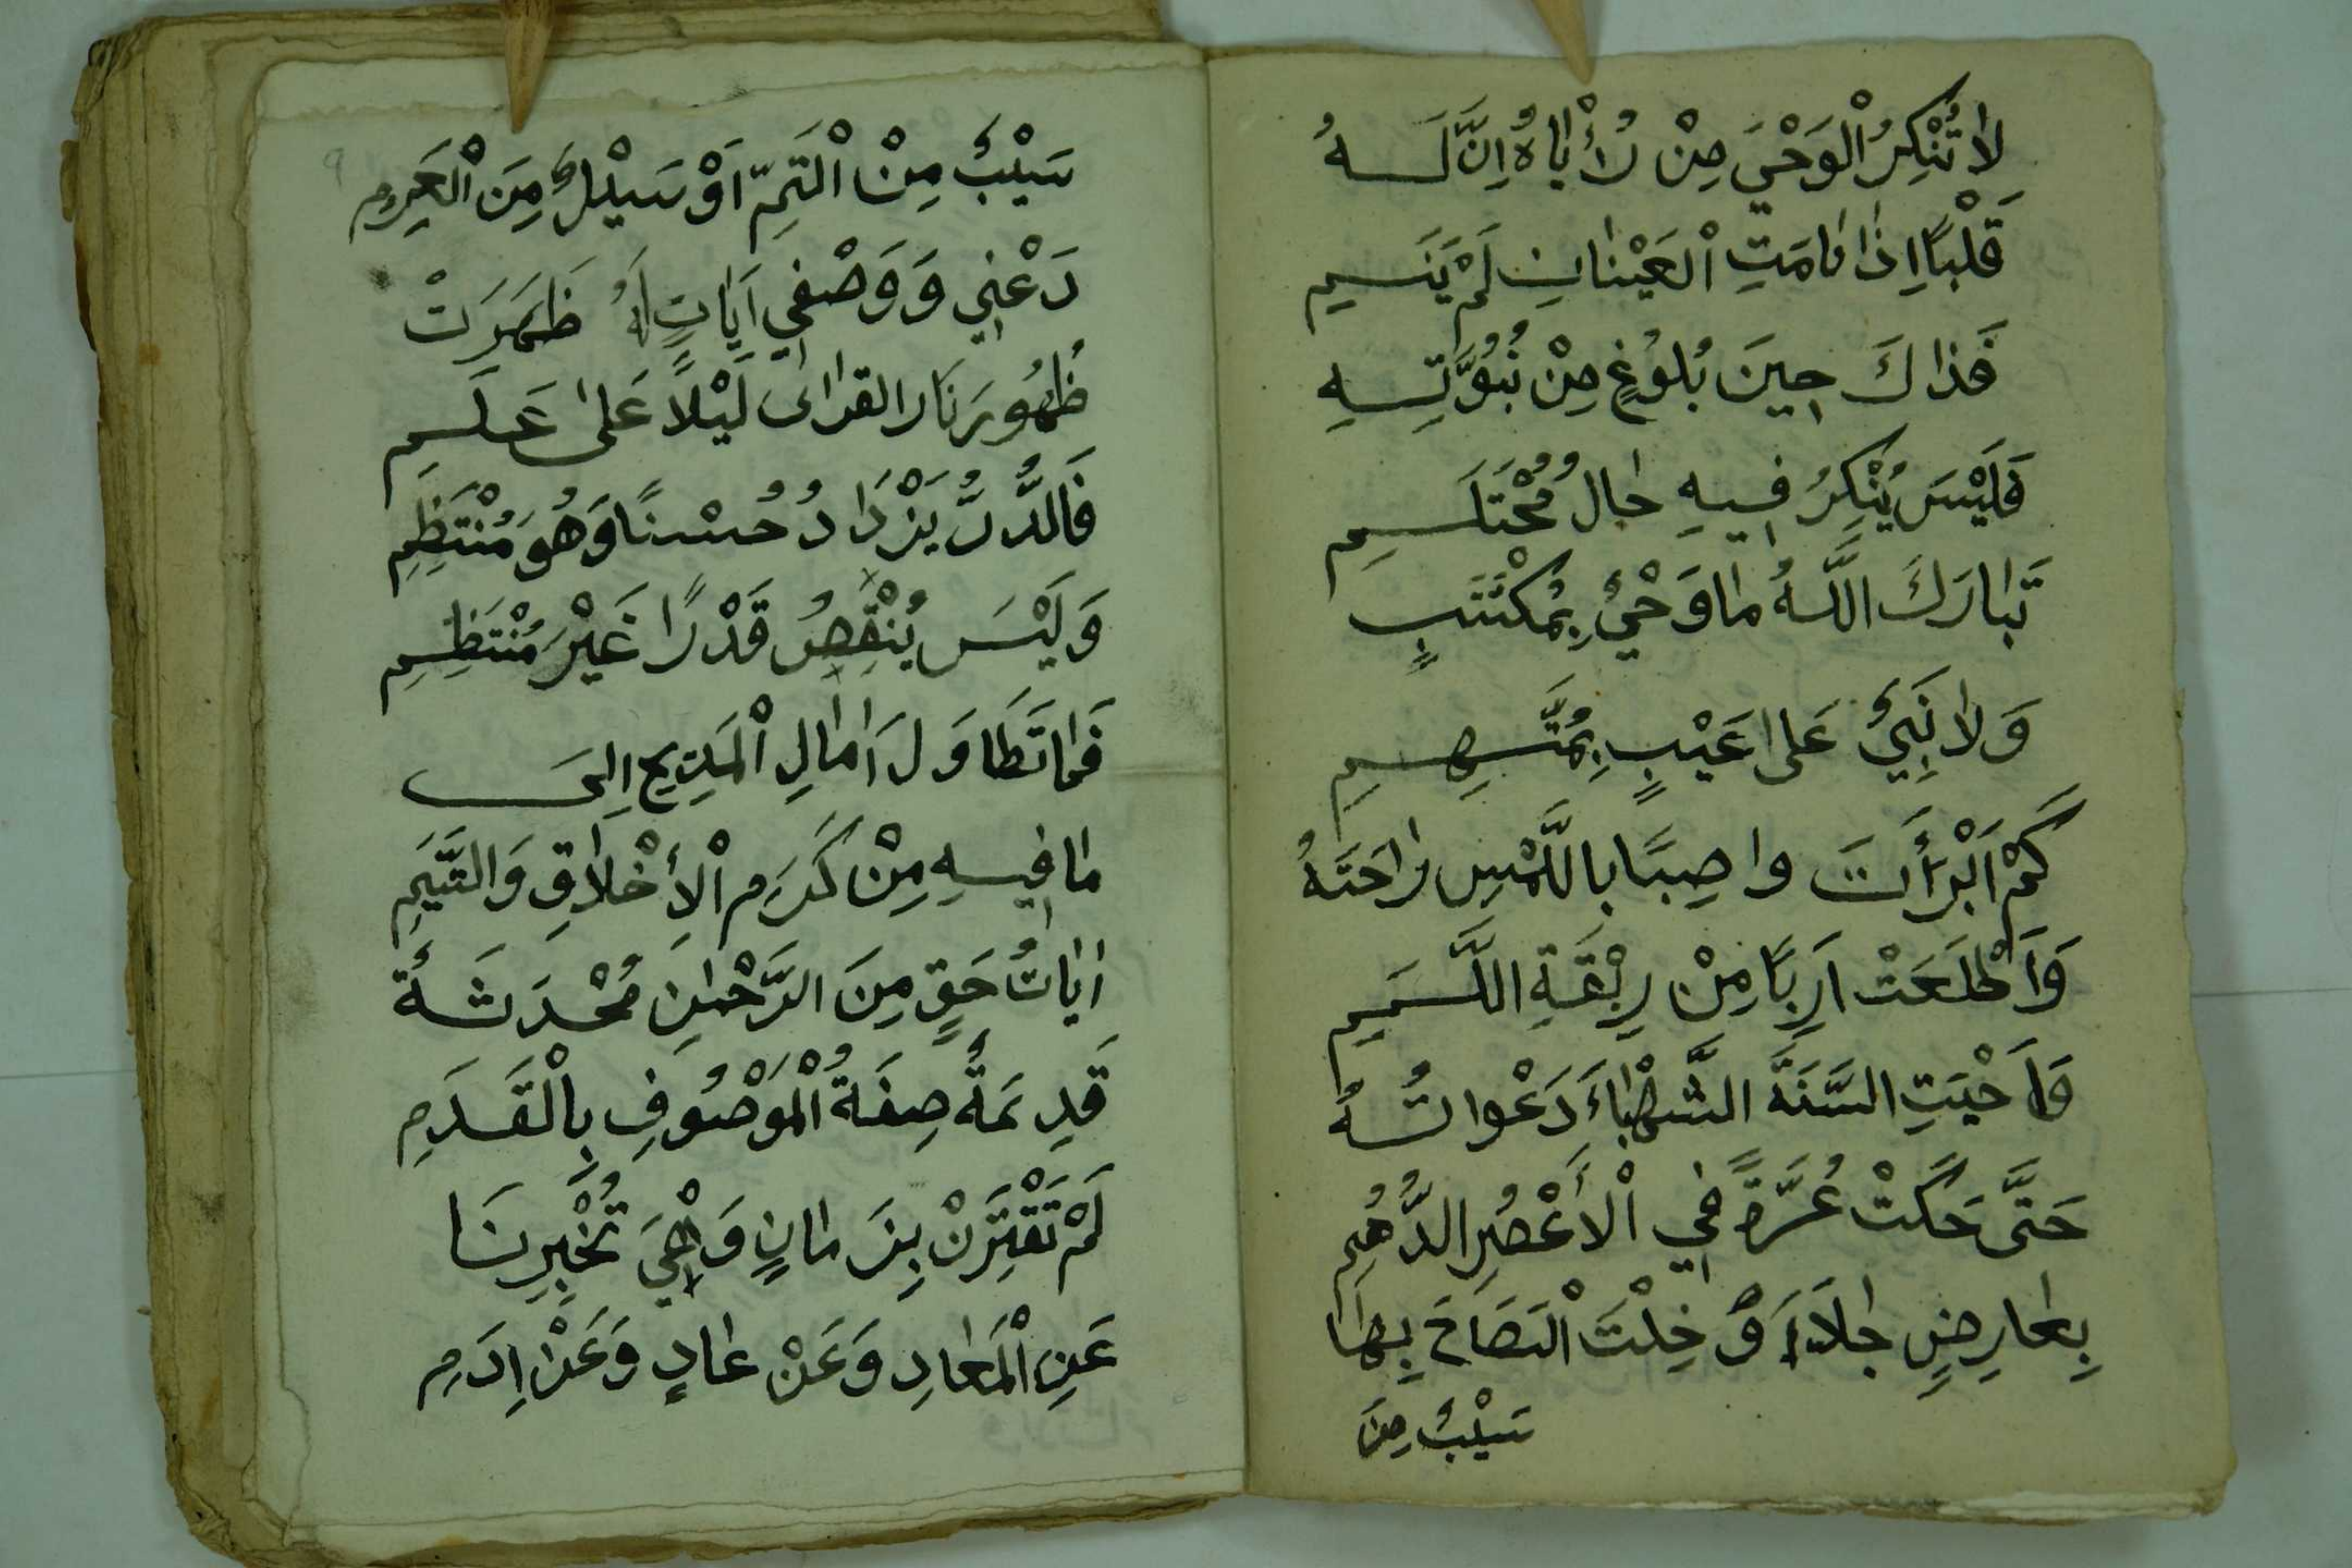 لَا تُنْكِرُ الْوَحْيَ مِنْ رُأْيَاهُ اِنَّ لَهُ
قَلْبًا اِذَا نَامَتِ الْعَيْنَانِ لَمْ يَنَمِ
فَذَاكَ حِينَ بُلُوْغٍ مِنْ نُبُوَّتِهِ
فَلَيْسَ يُنْكِرُ فِيهِ حَالُ مُحْتَلِمِ
تَبَارَكَ اللَّهُ مَا وَحْيٌ بِمُكْتَسَبٍ
وَلَا نَبِيٌّ عَلَا غَيْبٍ بِمُتَّهِمِ
كَمْ اَبْرَأَتَ وَاصِبًا بِاللَّمْسِ رَاحَتَهُ
وَاَطْلَعَتْ اَرِبًا مِنْ رِبْقَةِ اللَّمَمِ
وَاَحْيَتِ السَّنَةَ الشَّهْبَاءَ دَعْوَاتُهُ
حَتَّى حَكَتْ غُرَّةً فِي الْأَعْصُرِ الدُّهُمِ
بِعَارِضٍ جَلَاءَ وْ خِلْتَ الْبَصَاحَ بِهَا
سَيْبٌ مِنَ
٩
سَيْبٌ مِنْ الْيَمِّ اَوْ سَيْلٌ مِنَ الْعَرِمِ
دَعْنِي وَوَصْفِي اَيَاتٍ لَهُ ظَهَرَتْ
ظُهُورَ نَارِ القرای لَيْلًا عَلَى عَلَمِ
فَالدُّرُّ يَزْدَادُ حُسْنًا وَهُوَ مُنْتَظِمِ
وَلَيْسَ يُنْقِصُ قَدْرًا غَيْرَ مُنْتَظِمِ
فَمَا تَطَاوَلَ اٰمَالِ الْمَدِيحِ اِلَى
مَا فِيهِ مِنْ كَرَمِ الْأَخْلَاقِ وَالشِّيَمِ
اٰيَاتُ حَقٍّ مِنَ الرَّحْمٰنِ مُحْدَثَةٌ
قَدِيمَةٌ صِفَةُ الْمَوْصُوفِ بِالْقَدَمِ
لَمْ تَقْتَرِنْ بِزَمَانٍ وَهْيَ تُخْبِرِنَا
عَنِ الْمَعَادِ وَعَنْ عَادٍ وَعَنْ اِرَمِ